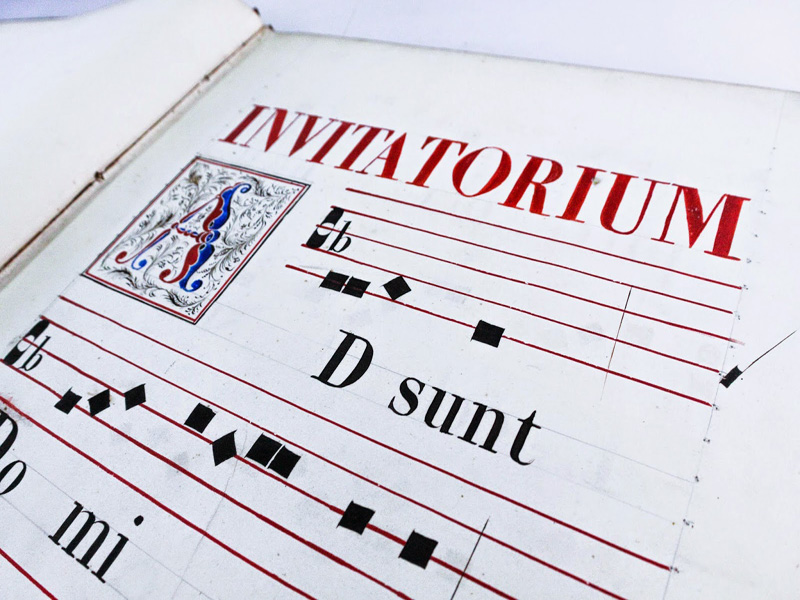 INVITATORIUM
A
D sunt
Do mi